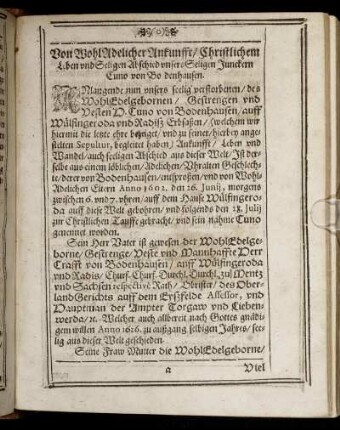 Von WohlAdelicher Ankunfft/ Christlichem
Leben vnd Seligen Abschied vnsers Seligen Junckern
Cuno von Bodenhausen.
ANlangende nun vnsers seelig verstorbenen/ des
WohlEdelgebornen/ Gestrengen vnd
Vesten D. Cuno von Bodenhausen/ auff
Wülfingeroda vnd Radiß Erbsassen/ (welchem wir
hiermit die letzte ehre bezeiget/ vnd zu seiner/hierben ange-
stelten Sepultur, begleitet haben) Ankunfft/ Leben vnd
Wandel/ auch seeligen Abschied aus dieser Welt/ Ist der-
selbe aus einem löblichen/ Adelichen/ Vhralten Geschlech-
te/ derer von Bodenhausen/ entsprossen/ vnd von Wohl-
Adelichen Eltern Anno 1602. den 26. Junij, morgens
zwischen 6. vnd 7. vhren/ auff dem Hause Wülfingero-
da auff diese Welt gebohren/ vnd folgends den 18. Julij
zur Christlichen Tauffe gebracht/ vnd sein nahme Cuno
genennet worden.
Sein Herr Vater ist gewesen der WohlEdelge-
borne/ Gestrenge/ Veste vnd Mannhaffte Herr
Crafft von Bodenhausen/ auff Wülfingeroda
vnd Radis/ Churf. Churf. Durchl. Durchl. zu Mentz
vnd Sachsen respectivè Rath/ Obrister/ des Ober-
landGerichts auff dem Eyßfelde Assessor, vnd
Hauptman der Ampter Torgaw vnd Lieben-
werda/ ꝛc. Welcher auch allbereit nach Gottes gnädi-
gem willen Anno 1616. zu außgang selbigen Jahres/ see-
lig aus dieser Welt geschieden.
Seine Fraw Mutter die WohlEdelgeborne/
a
Viel